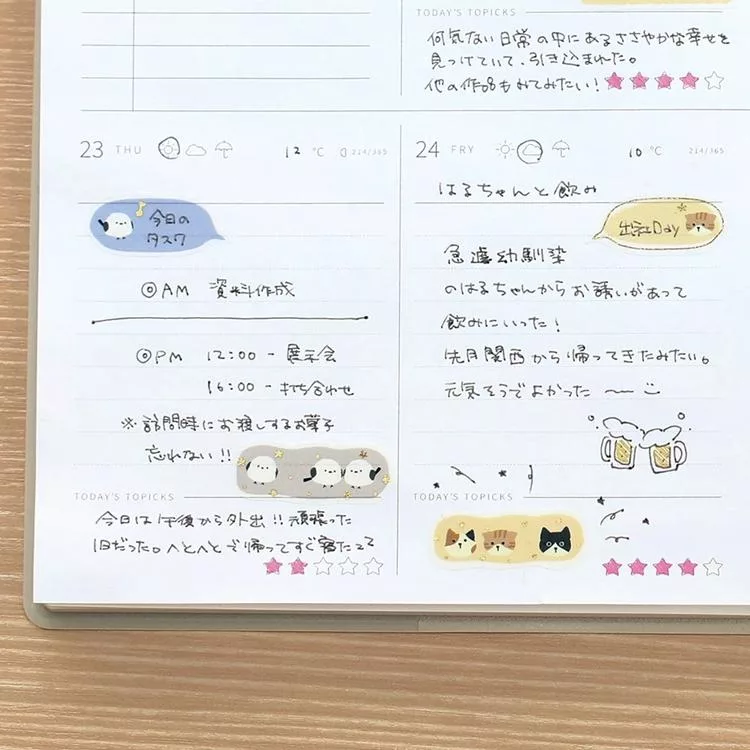 TODAY'S TOPICKS
何気ない日常の中にあるささやかな幸せを
見つけていて、引き込まれた。
他の作品もみてみたい！
23 THU 12 °C
今日の
タスク
◎AM 資料作成
◎PM 12:00 - 展示会
16:00 - 打ち合わせ
※訪問時にお渡しするお菓子
忘れない!!
TODAY'S TOPICKS
今日は午後から外出!!頑張った
1日だった。へとへとで帰ってすぐ寝たzz
24 FRY 10 °C 214/365
はるちゃんと飲み
出社Day
急遽幼馴染
のはるちゃんからお誘いがあって
飲みにいった！
先月関西から帰ってきたみたい。
元気そうでよかった〜
TODAY'S TOPICKS